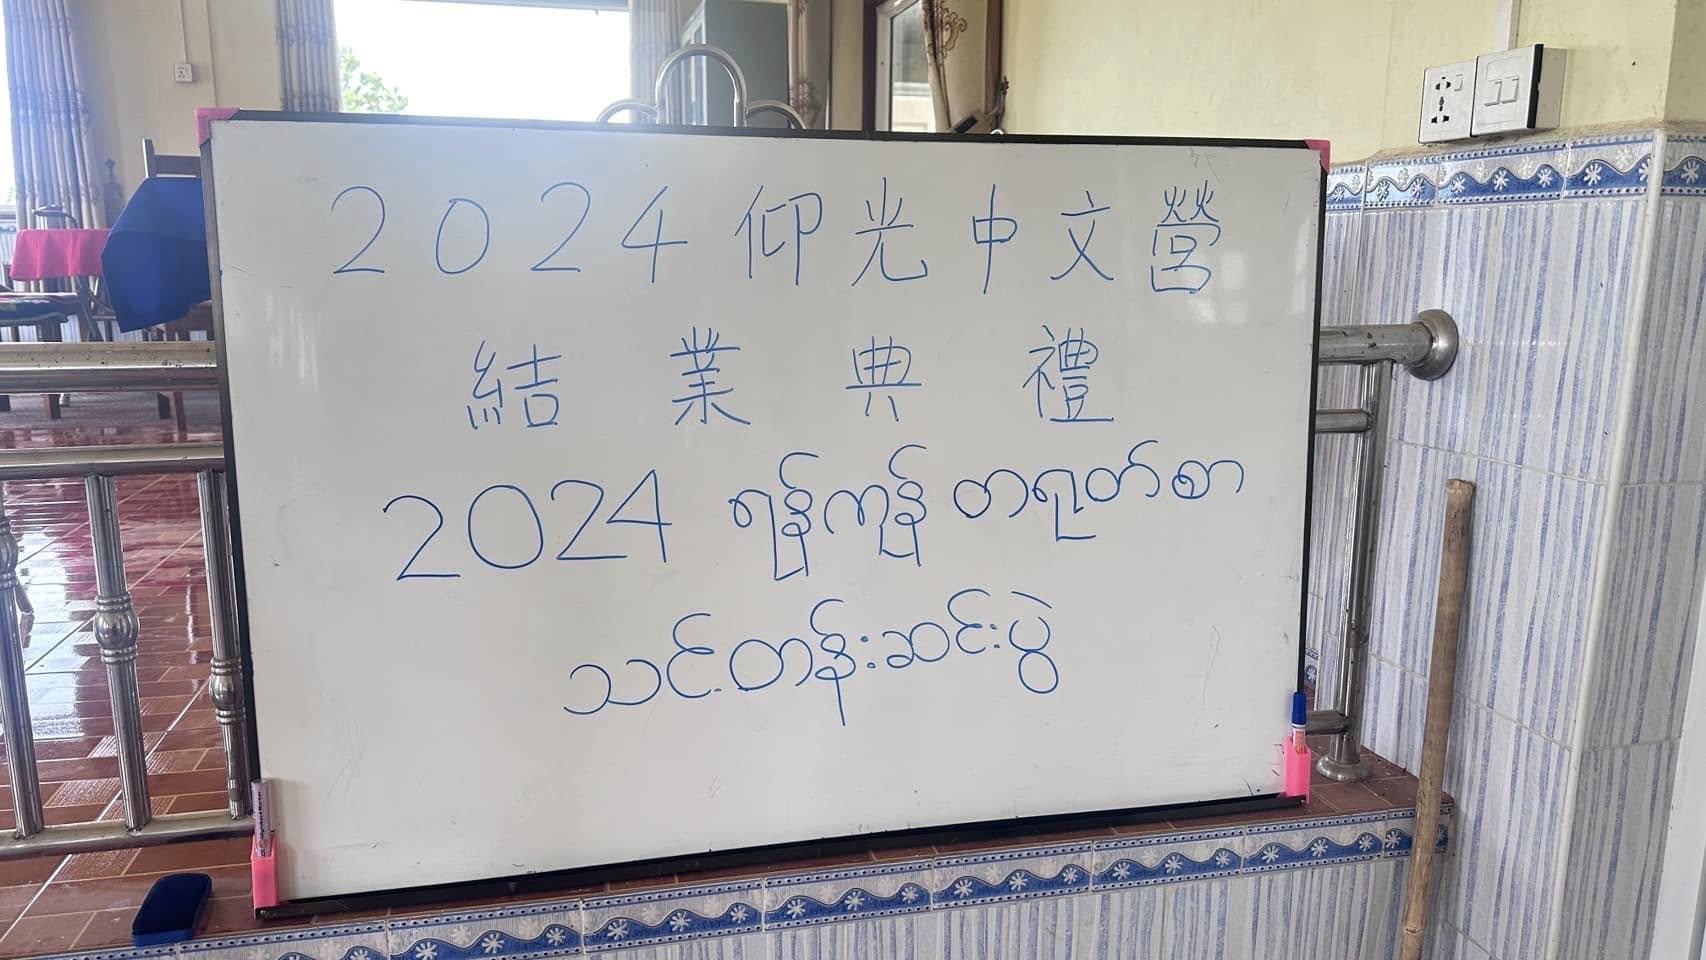 2024仰光中文營
結業典禮
2024 ရန်ကုန် တရုတ်စာ
သင်တန်းဆင်းပွဲ